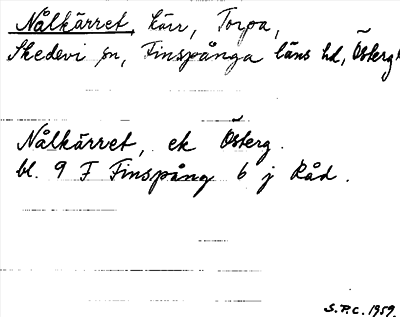 Nålkärret, kärr, Torpa,
Skedevi sn, Finspånga läns hd, Österg.
Nålkärret, ek Österg.
bl. 9 F Finspång 6 j Råd.
S.P.C. 1959.